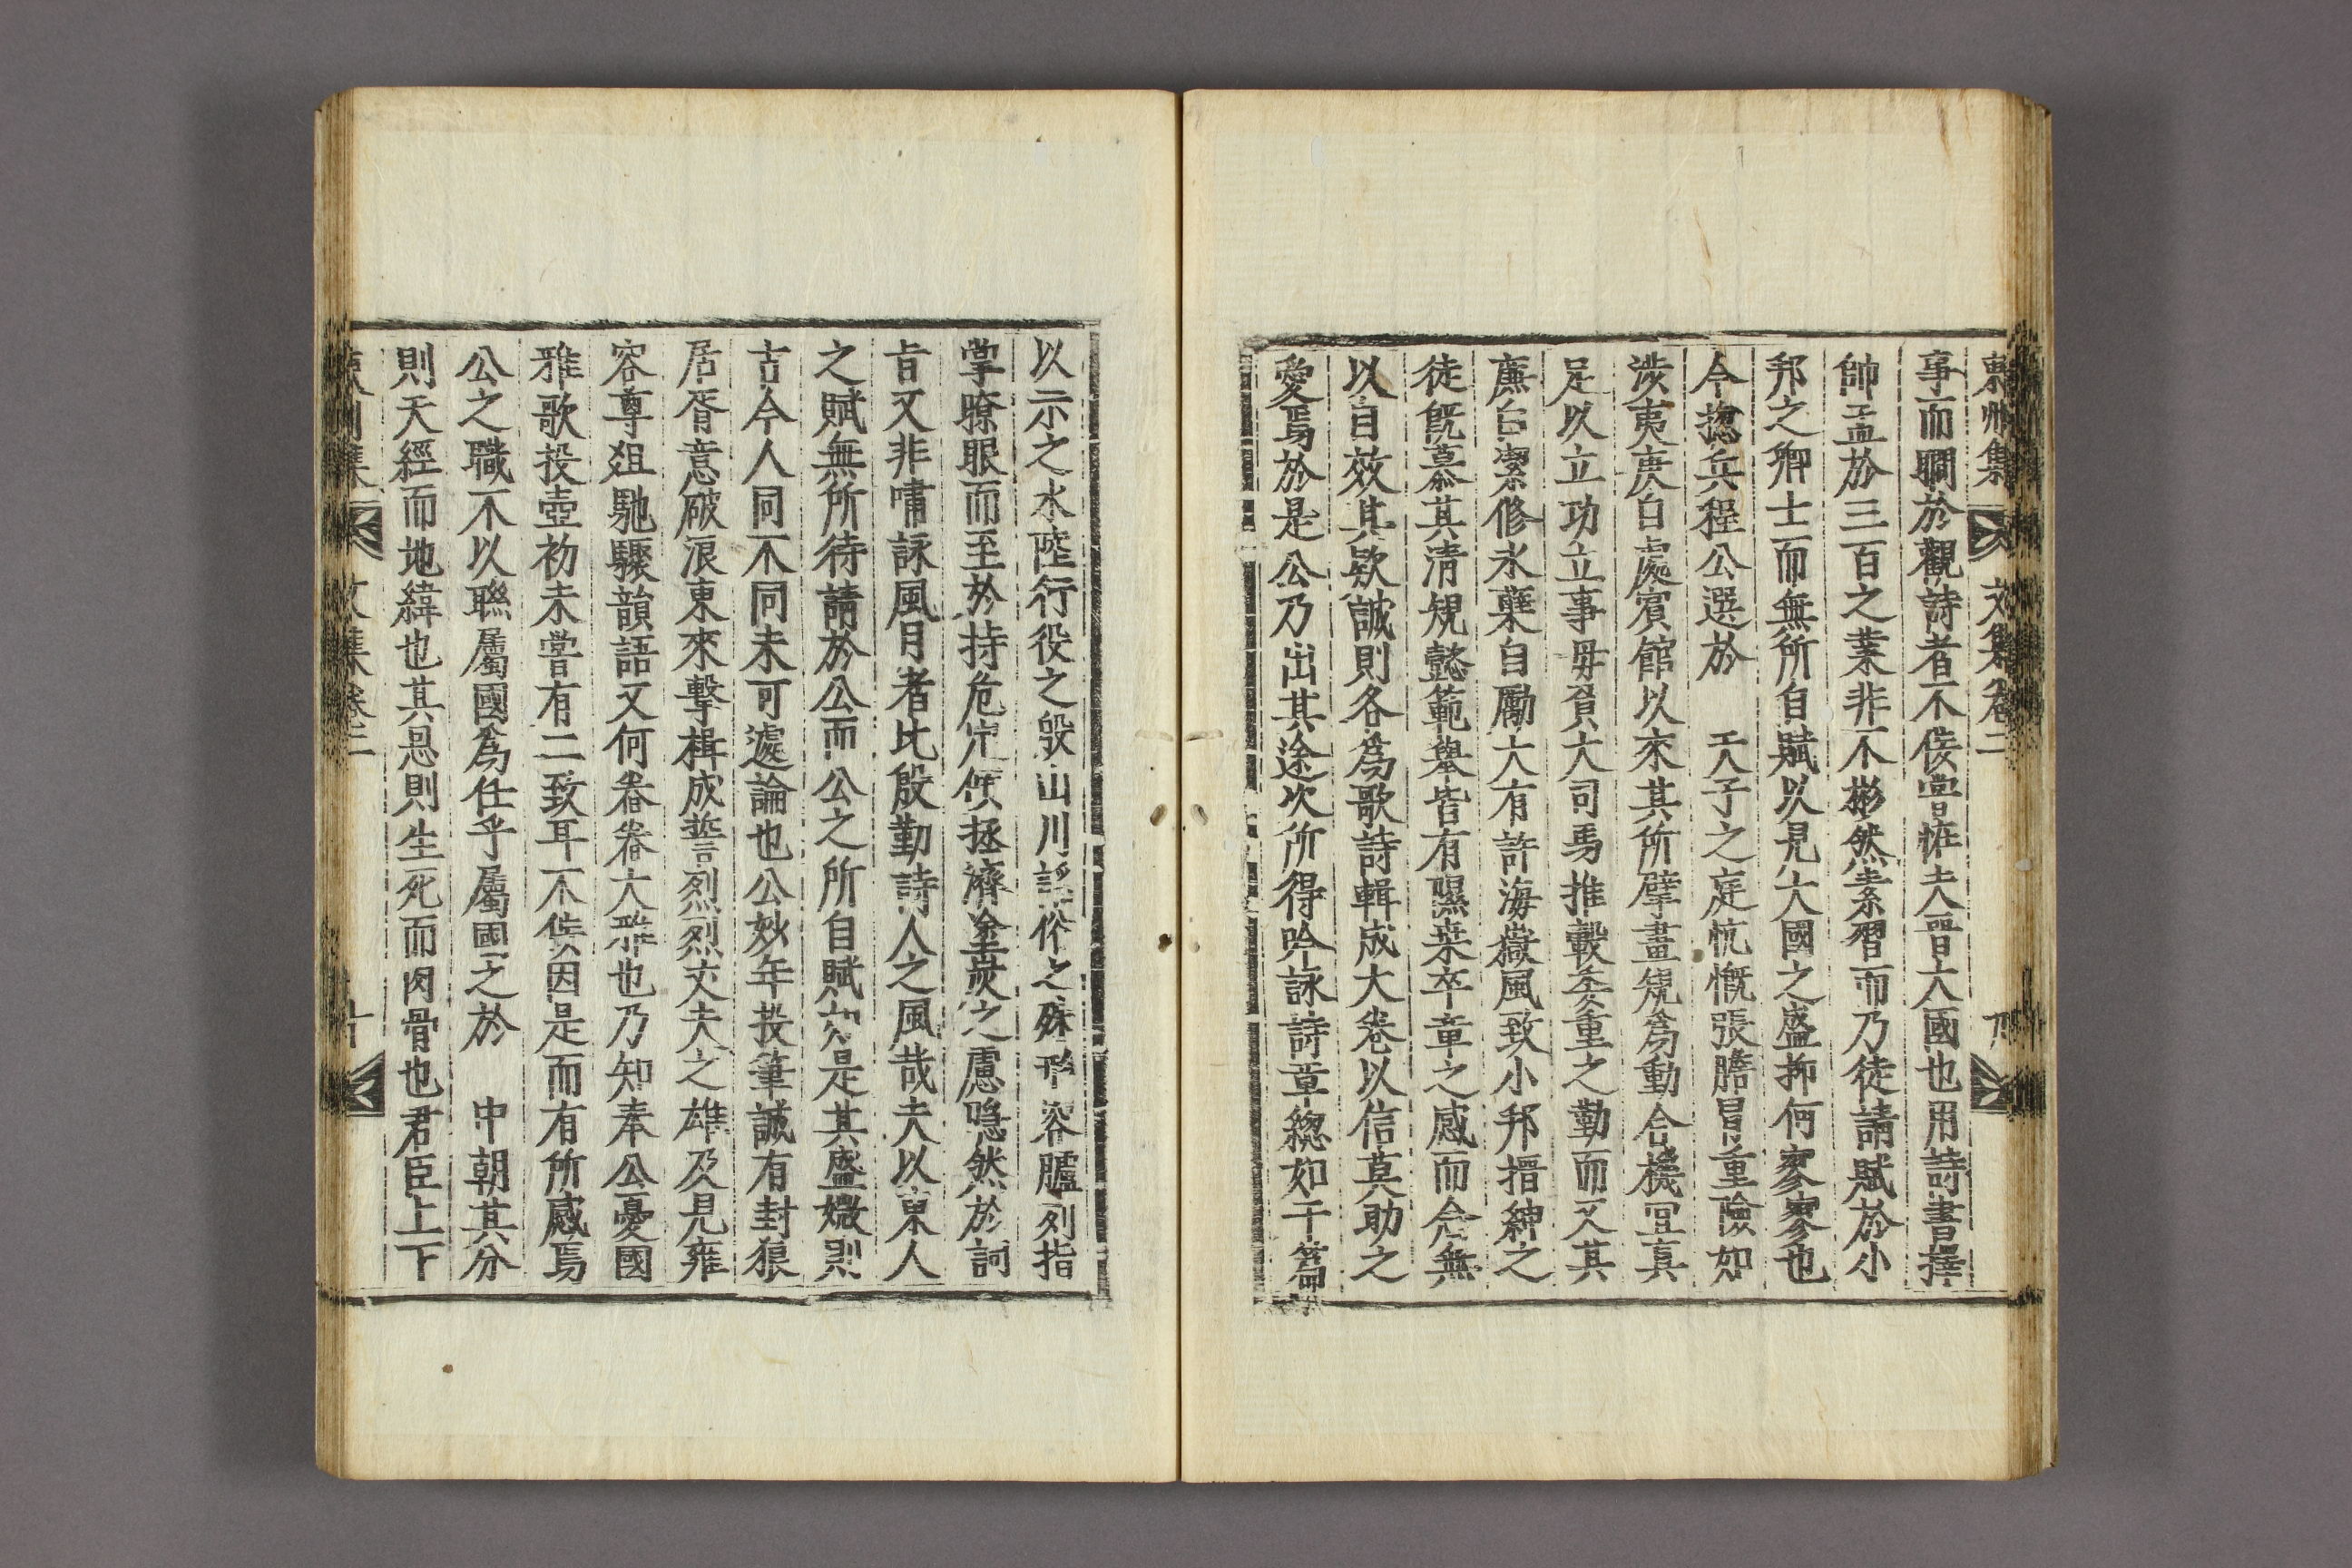 東州集 文集卷二 九
事而瞯於觀詩者不佞嘗惟夫晉大國也用詩書擇
帥盂於三百之業非不彬然素習而乃徒請賦於小
邦之卿士而無所自賦以見大國之盛抑何寥寥也
今摠兵程公選於 天子之庭忼慨張膽冒重險如
涉夷庚自處賓館以來其所擘畫䂓爲動合機宜眞
足以立功立事毋負大司馬推轂委重之勤而又其
廉白潔修氷蘗自勵大有許海嶽風致小邦搢紳之
徒旣慕其淸䂓懿範擧皆有隰桑卒章之感而合無
以自效其欵誠則各爲歌詩輯成大卷以信莫助之
愛焉於是公乃出其途次所得吟詠詩章緫如干篇
以示之水陸行役之與山川謠俗之殊形容臚列指
掌瞭眼而至於持危定傾拯濟塗炭之慮隱然於詞
旨又非嘯詠風月者比殷勤詩人之風哉夫以東人
之賦無所待請於公而公之所自賦如是其盛媺則
古今人同不同未可遽論也公妙年投筆誠有封狼
居胥意破浪東來擊楫成誓烈烈丈夫之雄及見雍
容尊爼馳驟韻語又何眷眷大雅也乃知奉公憂國
雅歌投壺初未嘗有二致耳不佞因是而有所感焉
公之職不以聯屬國爲任乎屬國之於 中朝其分
則天經而地緯也其恩則生死而肉骨也君臣上下
東州集 文集卷二 十